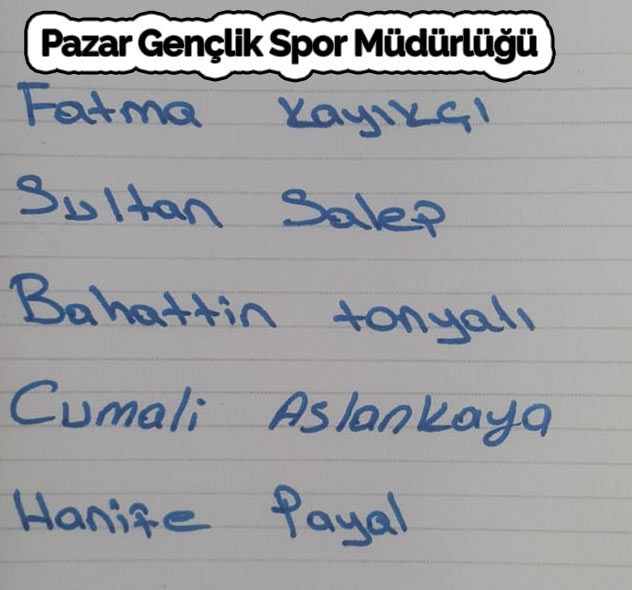 Pazar Gençlik Spor Müdürlüğü
Fatma Kayıkçı
Sultan Salep
Bahattin tonyalı
Cumali Aslankaya
Hanife Payal